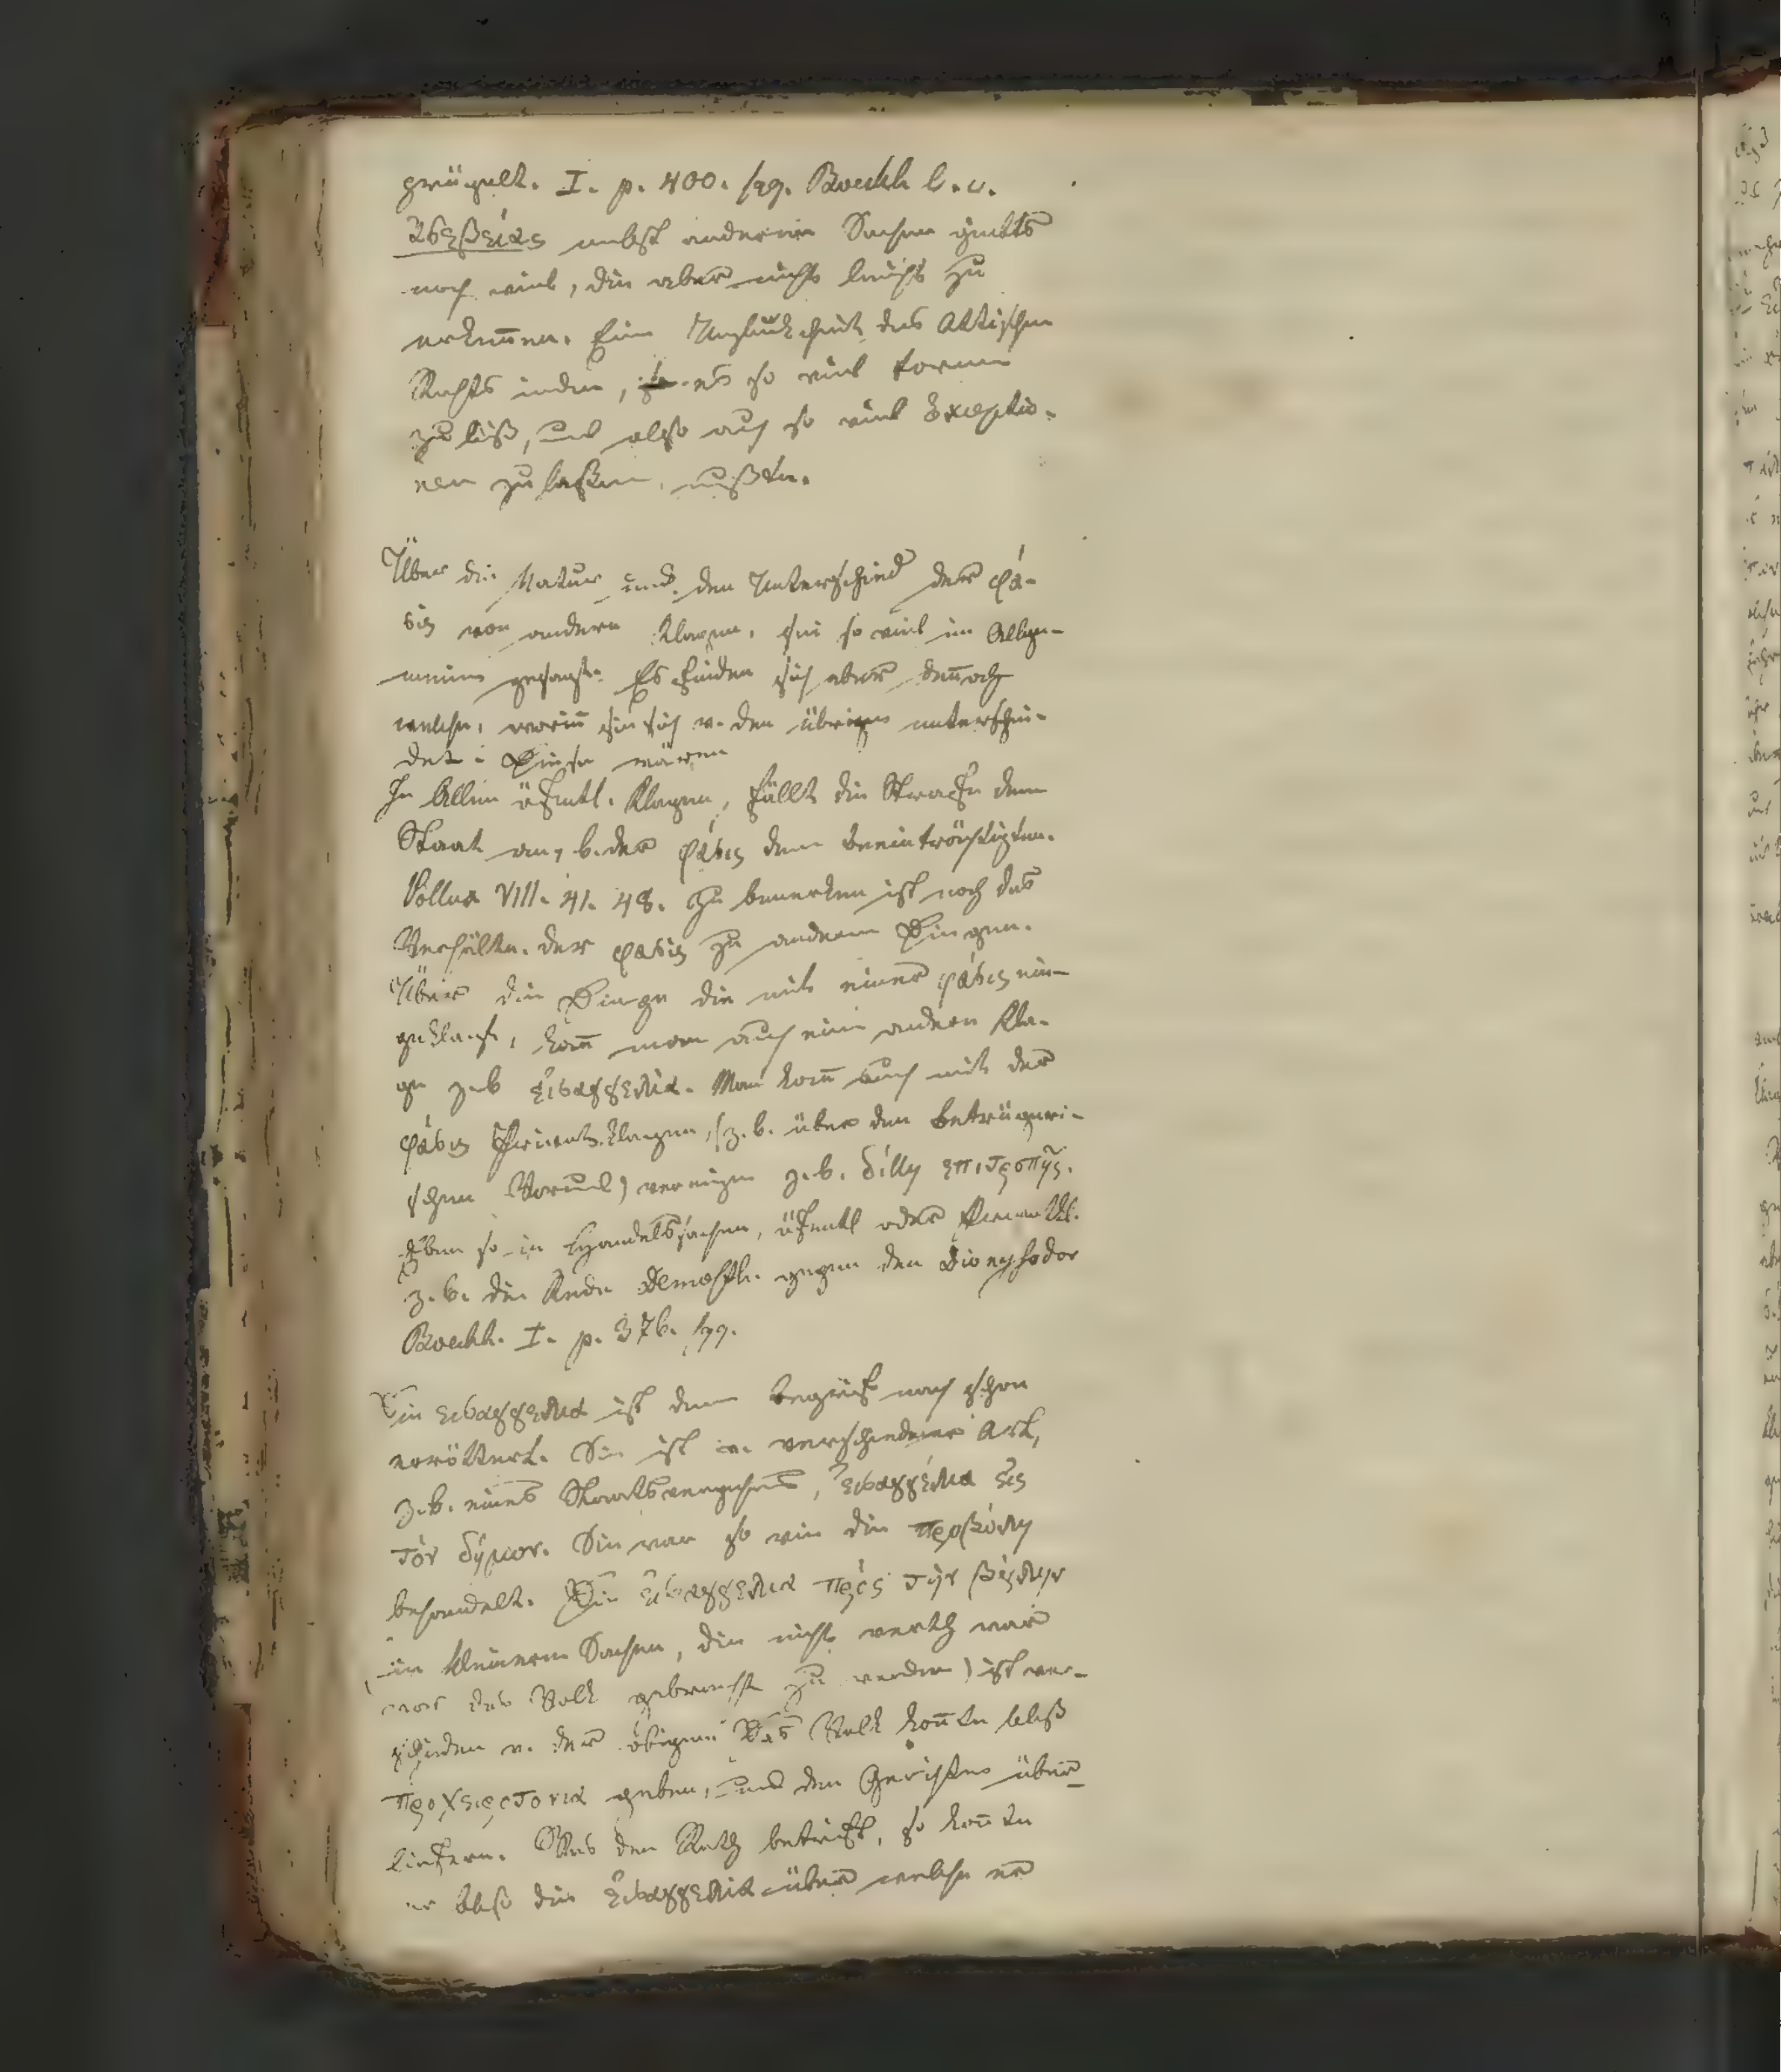 geregelt. I. p. 400. sqq. Boeckh l. c.
ἀσεβείας nebst anderen Sachen giebts
noch viel, die aber nicht leicht zu
erkennen. Eine des Attischen
Rechts indem, es so viel Formen
zu ließ, und also auch so viel Exceptio-
nen zu laßen mußte.
Über die Natur und den Unterschied der φά-
σις von andern Klagen, sei so viel im Allge-
meinen gesagt. Es finden sich aber dennoch
welche, worin sie sich v. den übrigen unterschei-
det. Diese wären
In allen öffentl. Klagen, fällt die Strafe dem
Staat an, b. der φάσις dem beeinträchtigten.
Pollux VIII. 41. 48. Zu bemerken ist noch das
Verhältn. der φασις zu anderen Dingen.
Über die Dinge die mit einer φάσις ein-
geklagt, kann man auch eine andern Kla-
ge z.b εἰσαγγελία. Man kann auch mit der
φάσις Privatklagen, (z.b. über den betrügeri-
schen Vormund) vereinigen z.b. δίκη επιτροπῆς.
Eben so in Handelssachen, öffentl oder Privatkl.
z.b. die Rede Demosth. gegen den Dionysodor
Boeckh. I. p. 376. sqq.
Die εισαγγελια ist dem Begriff nach schon
erörtert. Sie ist v. verschiedener Art,
z.b. eines Staatsvergehens, εἰσαγγέλια εἰς
τὸν δῆμον. Sie war so wie die προβολη
behandelt. Die εἰσαγγελια πρὸς τὴν βουλην
in kleineren Sachen, die nicht werth war
vors das Volk gebracht zu werden) ist ver-
schieden v. der obigen. Das Volk konnte bloß
προχειροτονια geben, und den Gerichten über-
liefern. Was den Rath betrifft, so konnte
er bloß die εἰσαγγελια über welche er